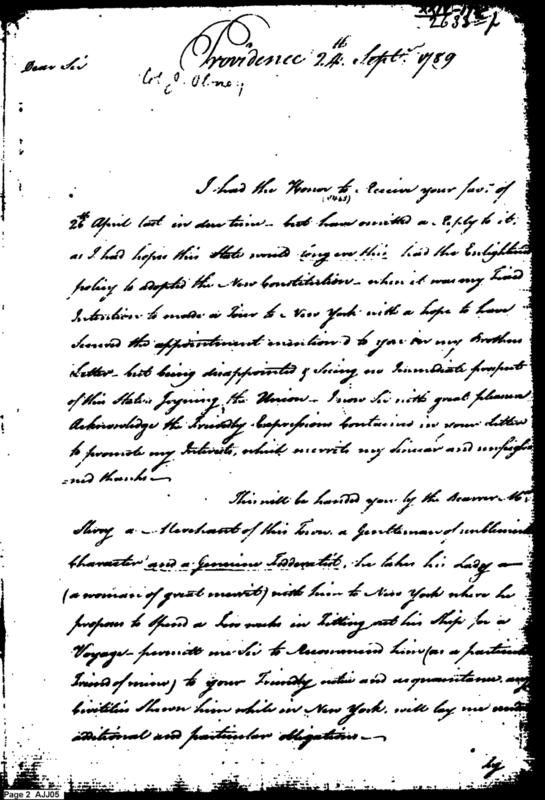 2633
Providence 24th Septr. 1789
Dear Sir
Col. J. Olney
I had the Honor to Receive your favr. of
(1465)
28th April last in due time - but have omitted a Reply to it,
as I had hopes this State would long ere this had the Enlightened
policy to adopted the New Constitution - when it was my Fixed
Intention to made a Tour to New York with a hope to have
Secured the appointment mention'd to you in my Brothers
Letter - but being disappointed & Seeing no Immediate prospect
of this State's Joyning the Union - I now Sir with great pleasure
Acknowledge the Friendly Expressions Contained in your Letter
to promote my Interests, which merrits my Sincear and unfeigh-
=ned thanks -
This will be handed you by the Bearer Mr.
a Merchant of this Town, a Gentleman of unblemish
Character and a Genuine Fedderalist, he takes his Lady -
(a woman of great merrit) with him to New York where he
proposes to Spend a Few weeks in Fitting out his Ship for a
Voyage - permitt me Sir to Recommend him (as a particular
Friend of mine) to your Friendly notice and acquaintance, any
Civilities Shewn him while in New York, will lay me under
additional and particular obligations -
Page 2 AJJ05